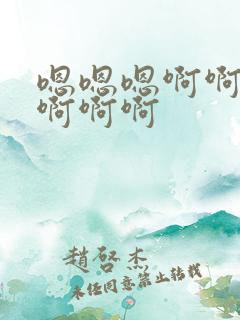 嗯嗯嗯啊啊
啊啊啊
趙啓杰
未经同意禁止转载